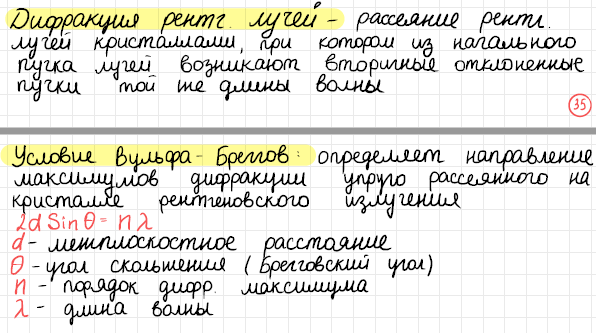 Дифракция рентг. лучей - рассеяние рентг.
лучей кристаллами, при котором из начального
пучка лучей возникают вторичные отклоненные
пучки той же длины волны
35
Условие Вульфа-Бреггов: определяет направление
максимумов дифракции упруго рассеянного на
кристалле рентгеновского излучения
2d Sin θ = n λ
d - межплоскостное расстояние
θ - угол скольжения (Брегговский угол)
n - порядок дифр. максимума
λ - длина волны